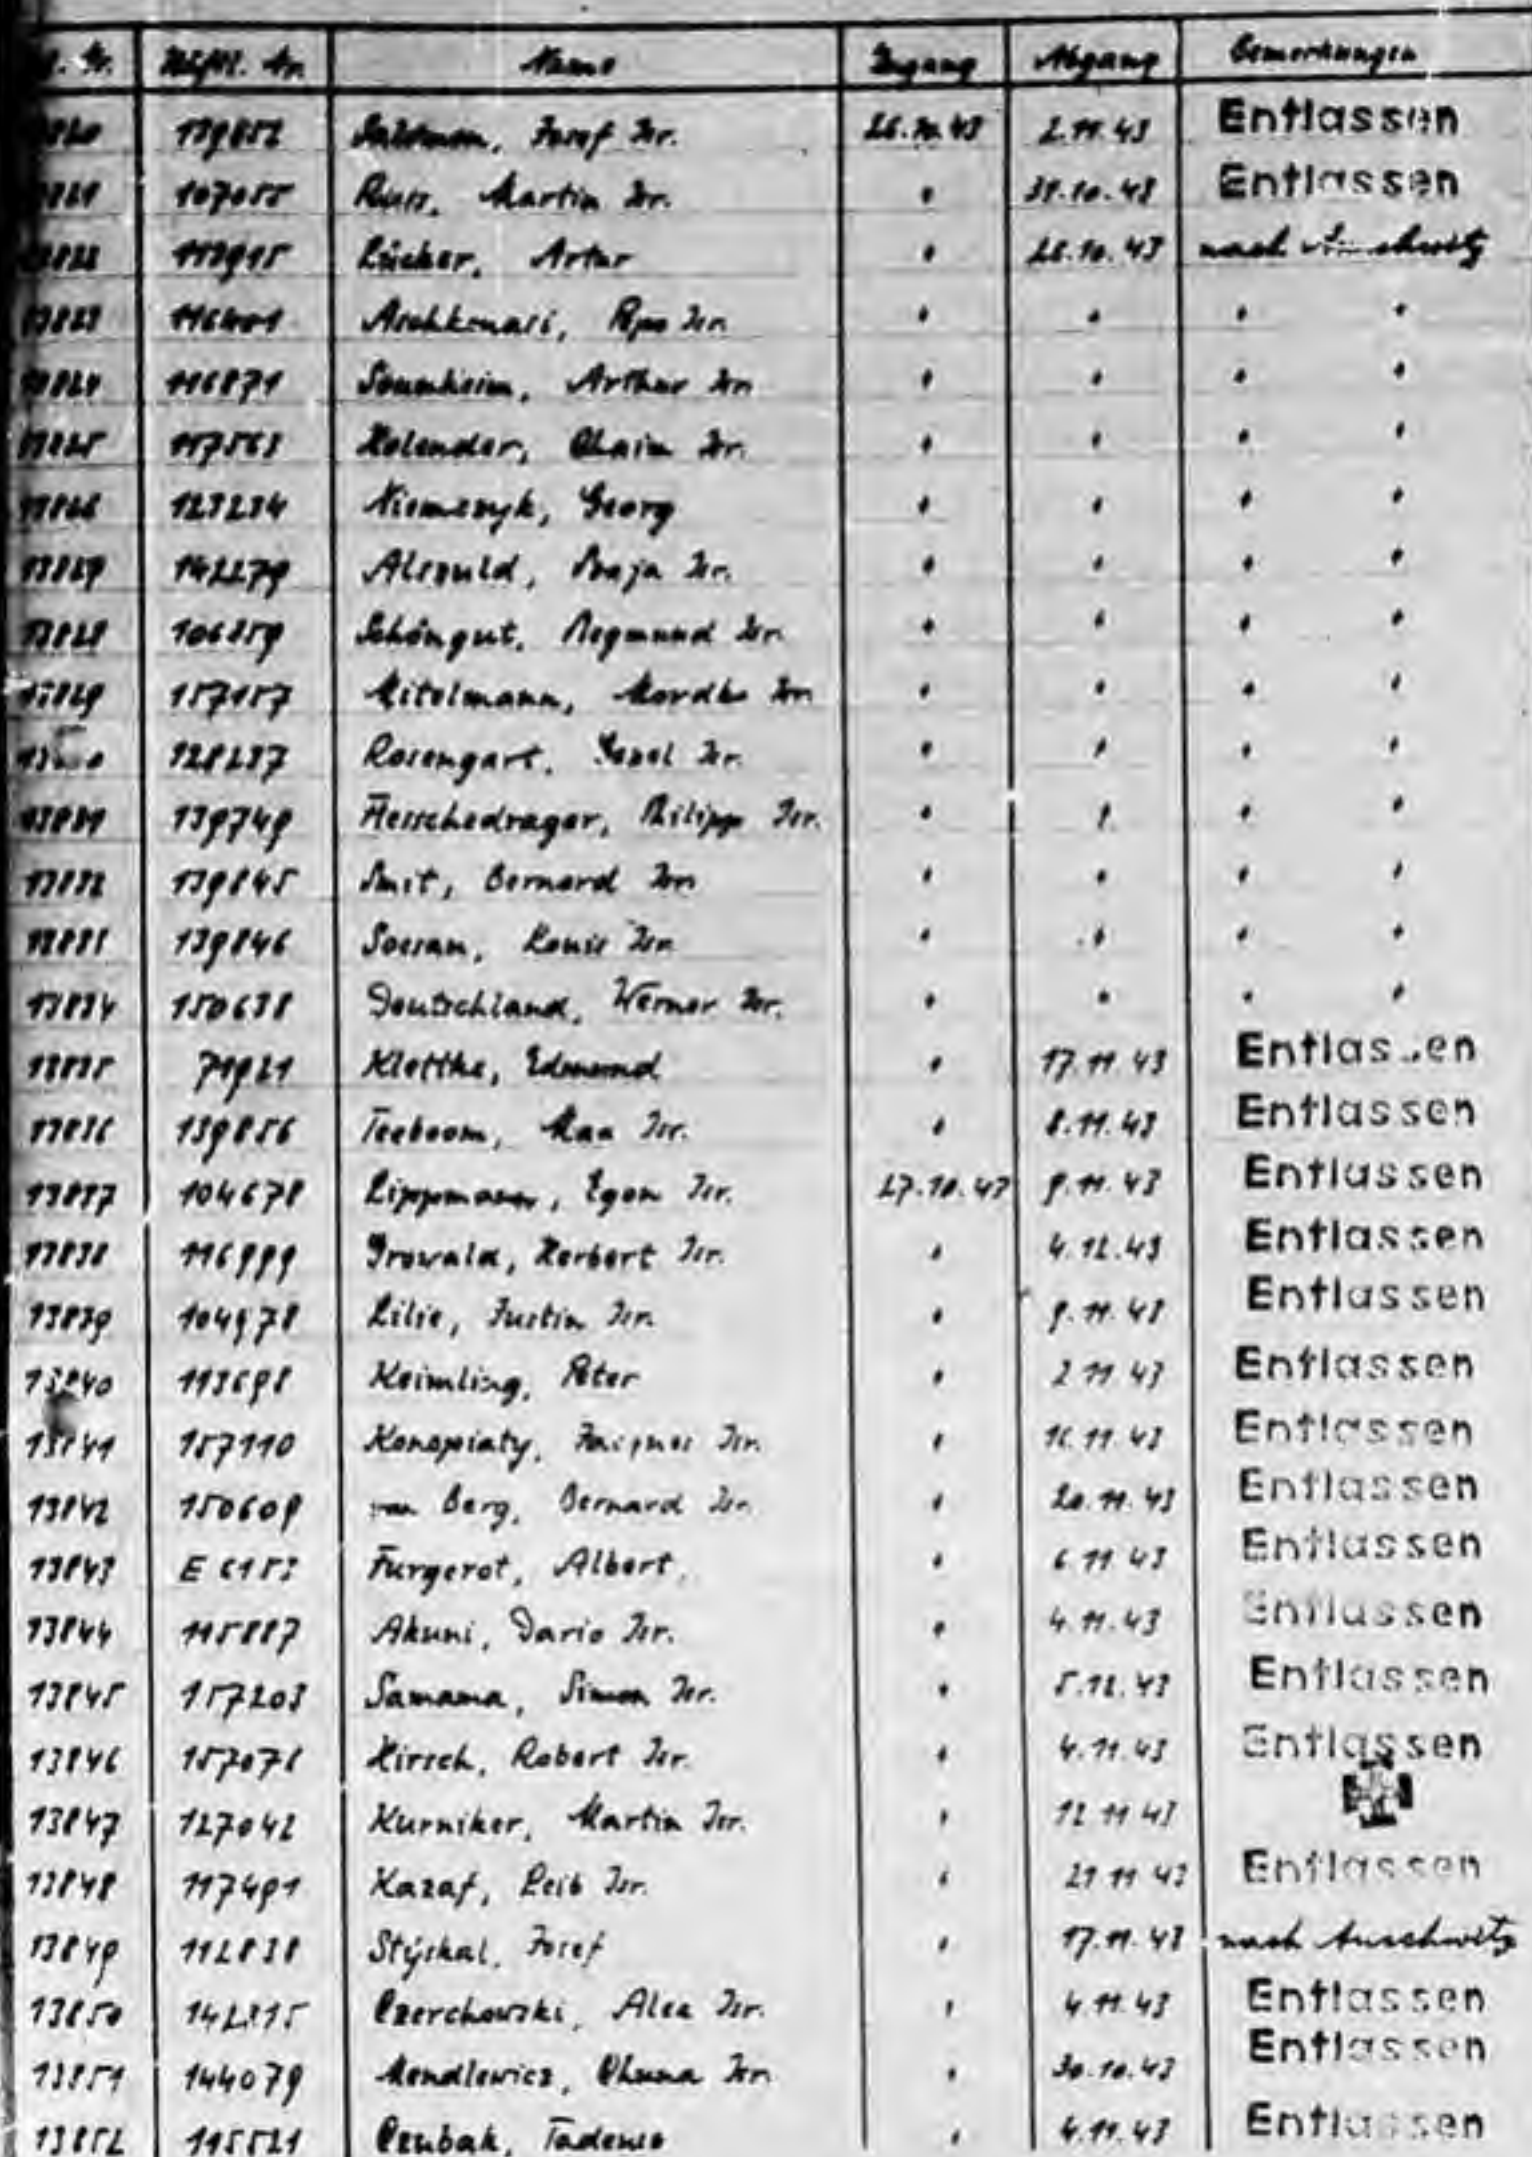 Nr. Häftl. Nr. Name Zugang Abgang Bemerkungen
139852 Salomon, Josef Isr. 26.10.43 2.11.43 Entlassen
107055 Russ, Martin Isr. " 31.10.43 Entlassen
113915 Lücker, Artur " 26.10.43 nach Auschwitz
13823 116401 Aschkenasi, Pepo Isr. " " " "
13824 116871 Sonnheim, Arthur Isr. " " " "
13825 117563 Holender, Chaim Isr. " " " "
13826 123234 Niemczyk, Georg " " " "
13827 142279 Alszuld, Isr. " " " "
13828 106859 Schöngut, Isr. " " " "
13829 157157 Mitelmann, Mordko Isr. " " " "
128237 Rosengart, Isr. " " " "
13831 139749 Hesschedrager, Philipp Isr. " " " "
13832 139845 Smit, Bernard Isr. " " " "
13833 139846 Soesan, Louis Isr. " " " "
13834 150638 Deutschland, Werner Isr. " " " "
13835 71921 Klottke, Edmund " 17.11.43 Entlassen
13836 139856 Teeboom, Max Isr. " 8.11.43 Entlassen
13837 104678 Lippmann, Egon Isr. 27.10.43 9.11.43 Entlassen
13838 116999 Growald, Herbert Isr. " 4.12.43 Entlassen
13839 104978 Lilie, Justin Isr. " 9.11.43 Entlassen
13840 113698 Keimling, Peter " 2.11.43 Entlassen
13841 157110 Konopiaty, Isr. " 16.11.43 Entlassen
13842 150609 van Berg, Bernard Isr. " 20.11.43 Entlassen
13843 E 6153 Furgerot, Albert " 6.11.43 Entlassen
13844 115887 Akuni, Dario Isr. " 4.11.43 Entlassen
13845 157203 Samama, Simon Isr. " 5.12.43 Entlassen
13846 157076 Hirsch, Robert Isr. " 4.11.43 Entlassen
13847 127042 Kurniker, Martin Isr. " 12.11.43
13848 117491 Kazaf, Leib Isr. " 21.11.43 Entlassen
13849 112838 Stýskal, Josef " 17.11.43 nach Auschwitz
13850 142315 Czerchowski, Alex Isr. " 4.11.43 Entlassen
13851 144079 Mendlewicz, Chuna Isr. " 30.10.43 Entlassen
13852 115521 Czubak, Tadeus " 4.11.43 Entlassen